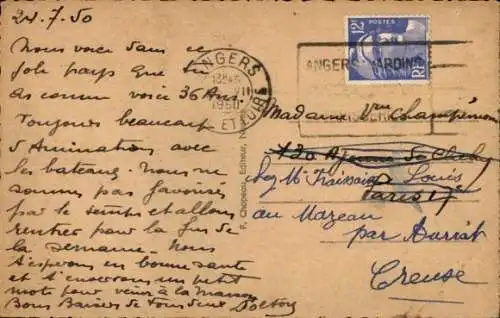 24.7.50
Nous voici dans ce
joli pays que tu
as connu voici 36 Ans
Toujours beaucoup
d'Animation avec
les bateaux. Nous ne
sommes pas favorisés
par le temps et allons
rentrer pour la fin de
la semaine. Nous
t'espérons en bonne santé
et t'enverrons un petit
mot pour venir à la maison
Bons Baisers de tous deux
F. Chapeau, Editeur, N
ANGERS
13H
1950
ET LOIRE
ANGERS JARDIN
POSTES
12F
Madame Vve Champémon
130 Avenue de Clichy
Paris 17e
chez Mr Fraissaix Louis
au Mazeau
par Auriat
Creuse